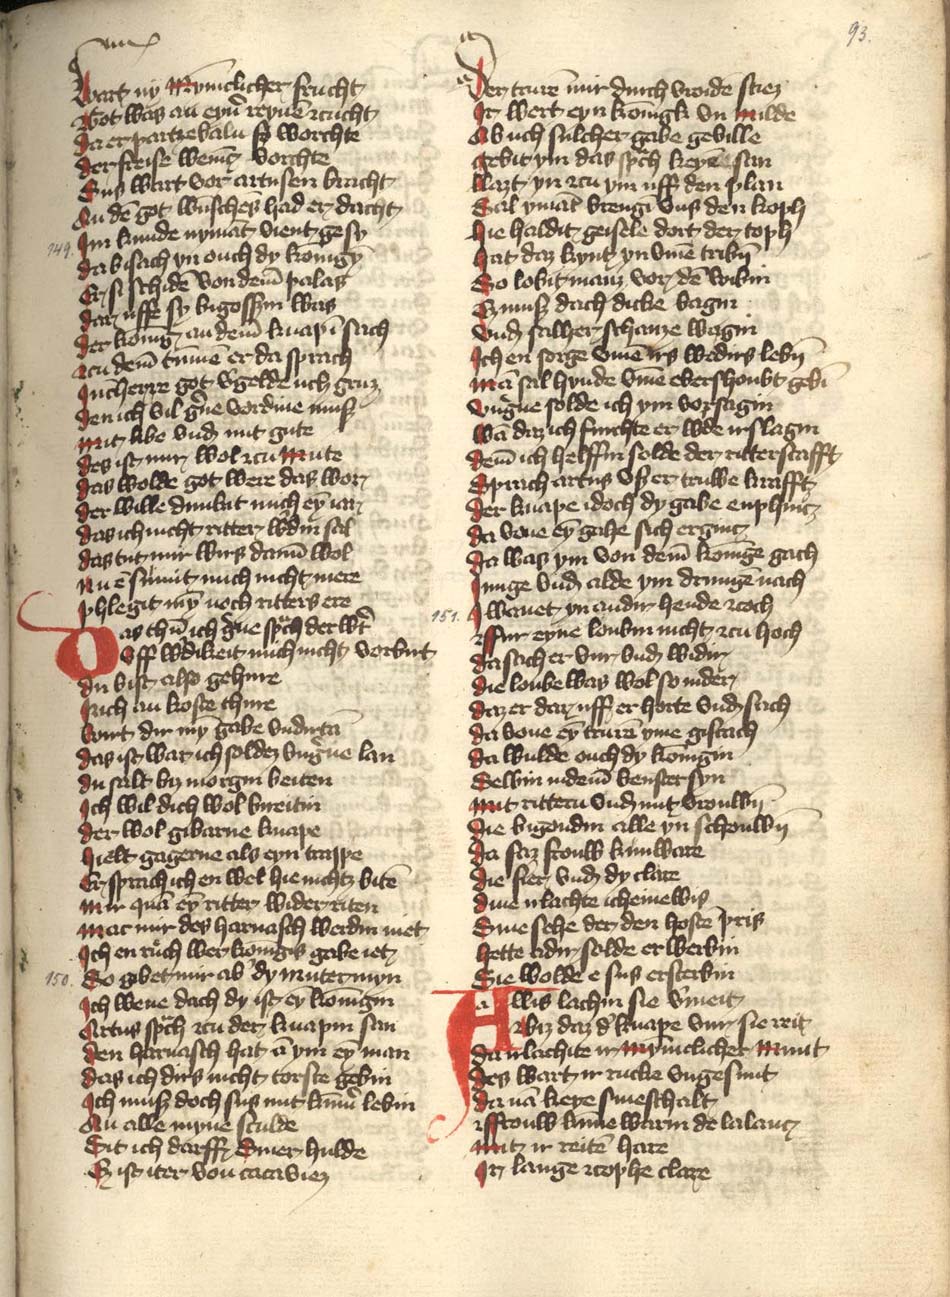 93.
Wart ny Mynniclicher frucht
Got was an eyn' reynē zcucht
Da er partzevaln so worchte
der freise wenig vorchte
Sus wart vor artusen bracht
An dē got wunsches had er dacht
149.
Im kunde nymāt vient gesy
da bisach yn ouch dy konigȳ
Er si schidē von dem palas
dar uffe sy bigossin was
der konig an dem knapī sach
zcu dem tumē er da sprach
Juncherre got v'gelde uch gruz
den ich vil g'ne vordine mus
mit libe vnd mit gute
des ist mir wol zcu Mute
das wolde got were das wor
der wille dunkit mich eȳ iar
das ich nicht ritter w'din sal
das tut mir wirs dann wol
Nu ē sumit mich nicht mere
phlegit myn noch ritters ere
Das thū ich g'ne sp'ch der w't
Off w'dikeit mich nicht vorbirt
du bist also gehure
Rich an koste thure
wirt dir myn gabe vndirtā
das ist war ich soldez vng'ne lan
du salt biz morgin beiten
Ich wil dich wol bireitin
der wol giborne knape
hielt gagerne als eyn trappe
Er sprach ich en wel hie nichtz bitē
mir quā eȳ ritter wider riten
mac mir des harnasch werdin niet
Ich en ruch wer konigis gabe iet
150.
So gibet mir ab' dy muter myn
Ich wene dach dy ist eȳ konigin
Artus sp'ch zcu der knapin san
den harnasch hat ā ym eȳ man
das ich dirs nicht torste gebin
Ich musz doch sus mit kūm' lebin
An alle myne sculde
Sit ich darff Siner hulde
Ez ist iter von cacaviez
der trurē mir durch vroide stiez
Ir wert eyn konigk vn milde
Ab uch sulcher gabe geville
gebit ym das sp'ch keyē san
lazt yn zcu ym uff den plan
Sal ymāt brengī vns den koph
hie haldit geisele dort der toph
hat daz kynt yn vmē tribī
So lobit manz vor dē wibin
Ez musz dach dicke bagin
vnd salher schanze wagin
Ich en sorge vmē irs wedirs lebī
mā sal hunde vme ebershoubt gebī
vng'ne solde ich ym vorsagin
wā daz ich furchte er w'de irslagin
dem ich helffin solde der ritterscafft
Sprach artus vsz er truwe krafft
der knape idoch dy gabe enphinc
da vone eȳ gahe sich erginc
da was ym von dem konige gach
Junge vnd alde ym drungē nach
151.
Iwanet yn an dir hende zcoch
zffur eyne loubin nicht zcu hoch
da sach er vur vnd widir
die loube was wol so nider
daz er dar uff er horte vnd sach
da vone eȳ trurē yme gischach
da wulde ouch dy konigin
Selbin in dem venster syn
mit rittern vnd mit vrouwī
die bigondin alle yn schouwī
da saz frouw kunware
die fier vnd dy clare
dine irlachte icheinewis
Sine sehe der den hoste pris
hette adir solde erwerbin
Sie wolde e sus ersterbin
Allis lachin sie v'meit
biz daz d' knape vur sie reit
da irlachite ir mynniclicher Munt
des wart ir rucke vngesunt
da nā keye sineschalt
zffrouw kūne warin de lalant
mit ir reitē hare
Ir lange zcophe clare